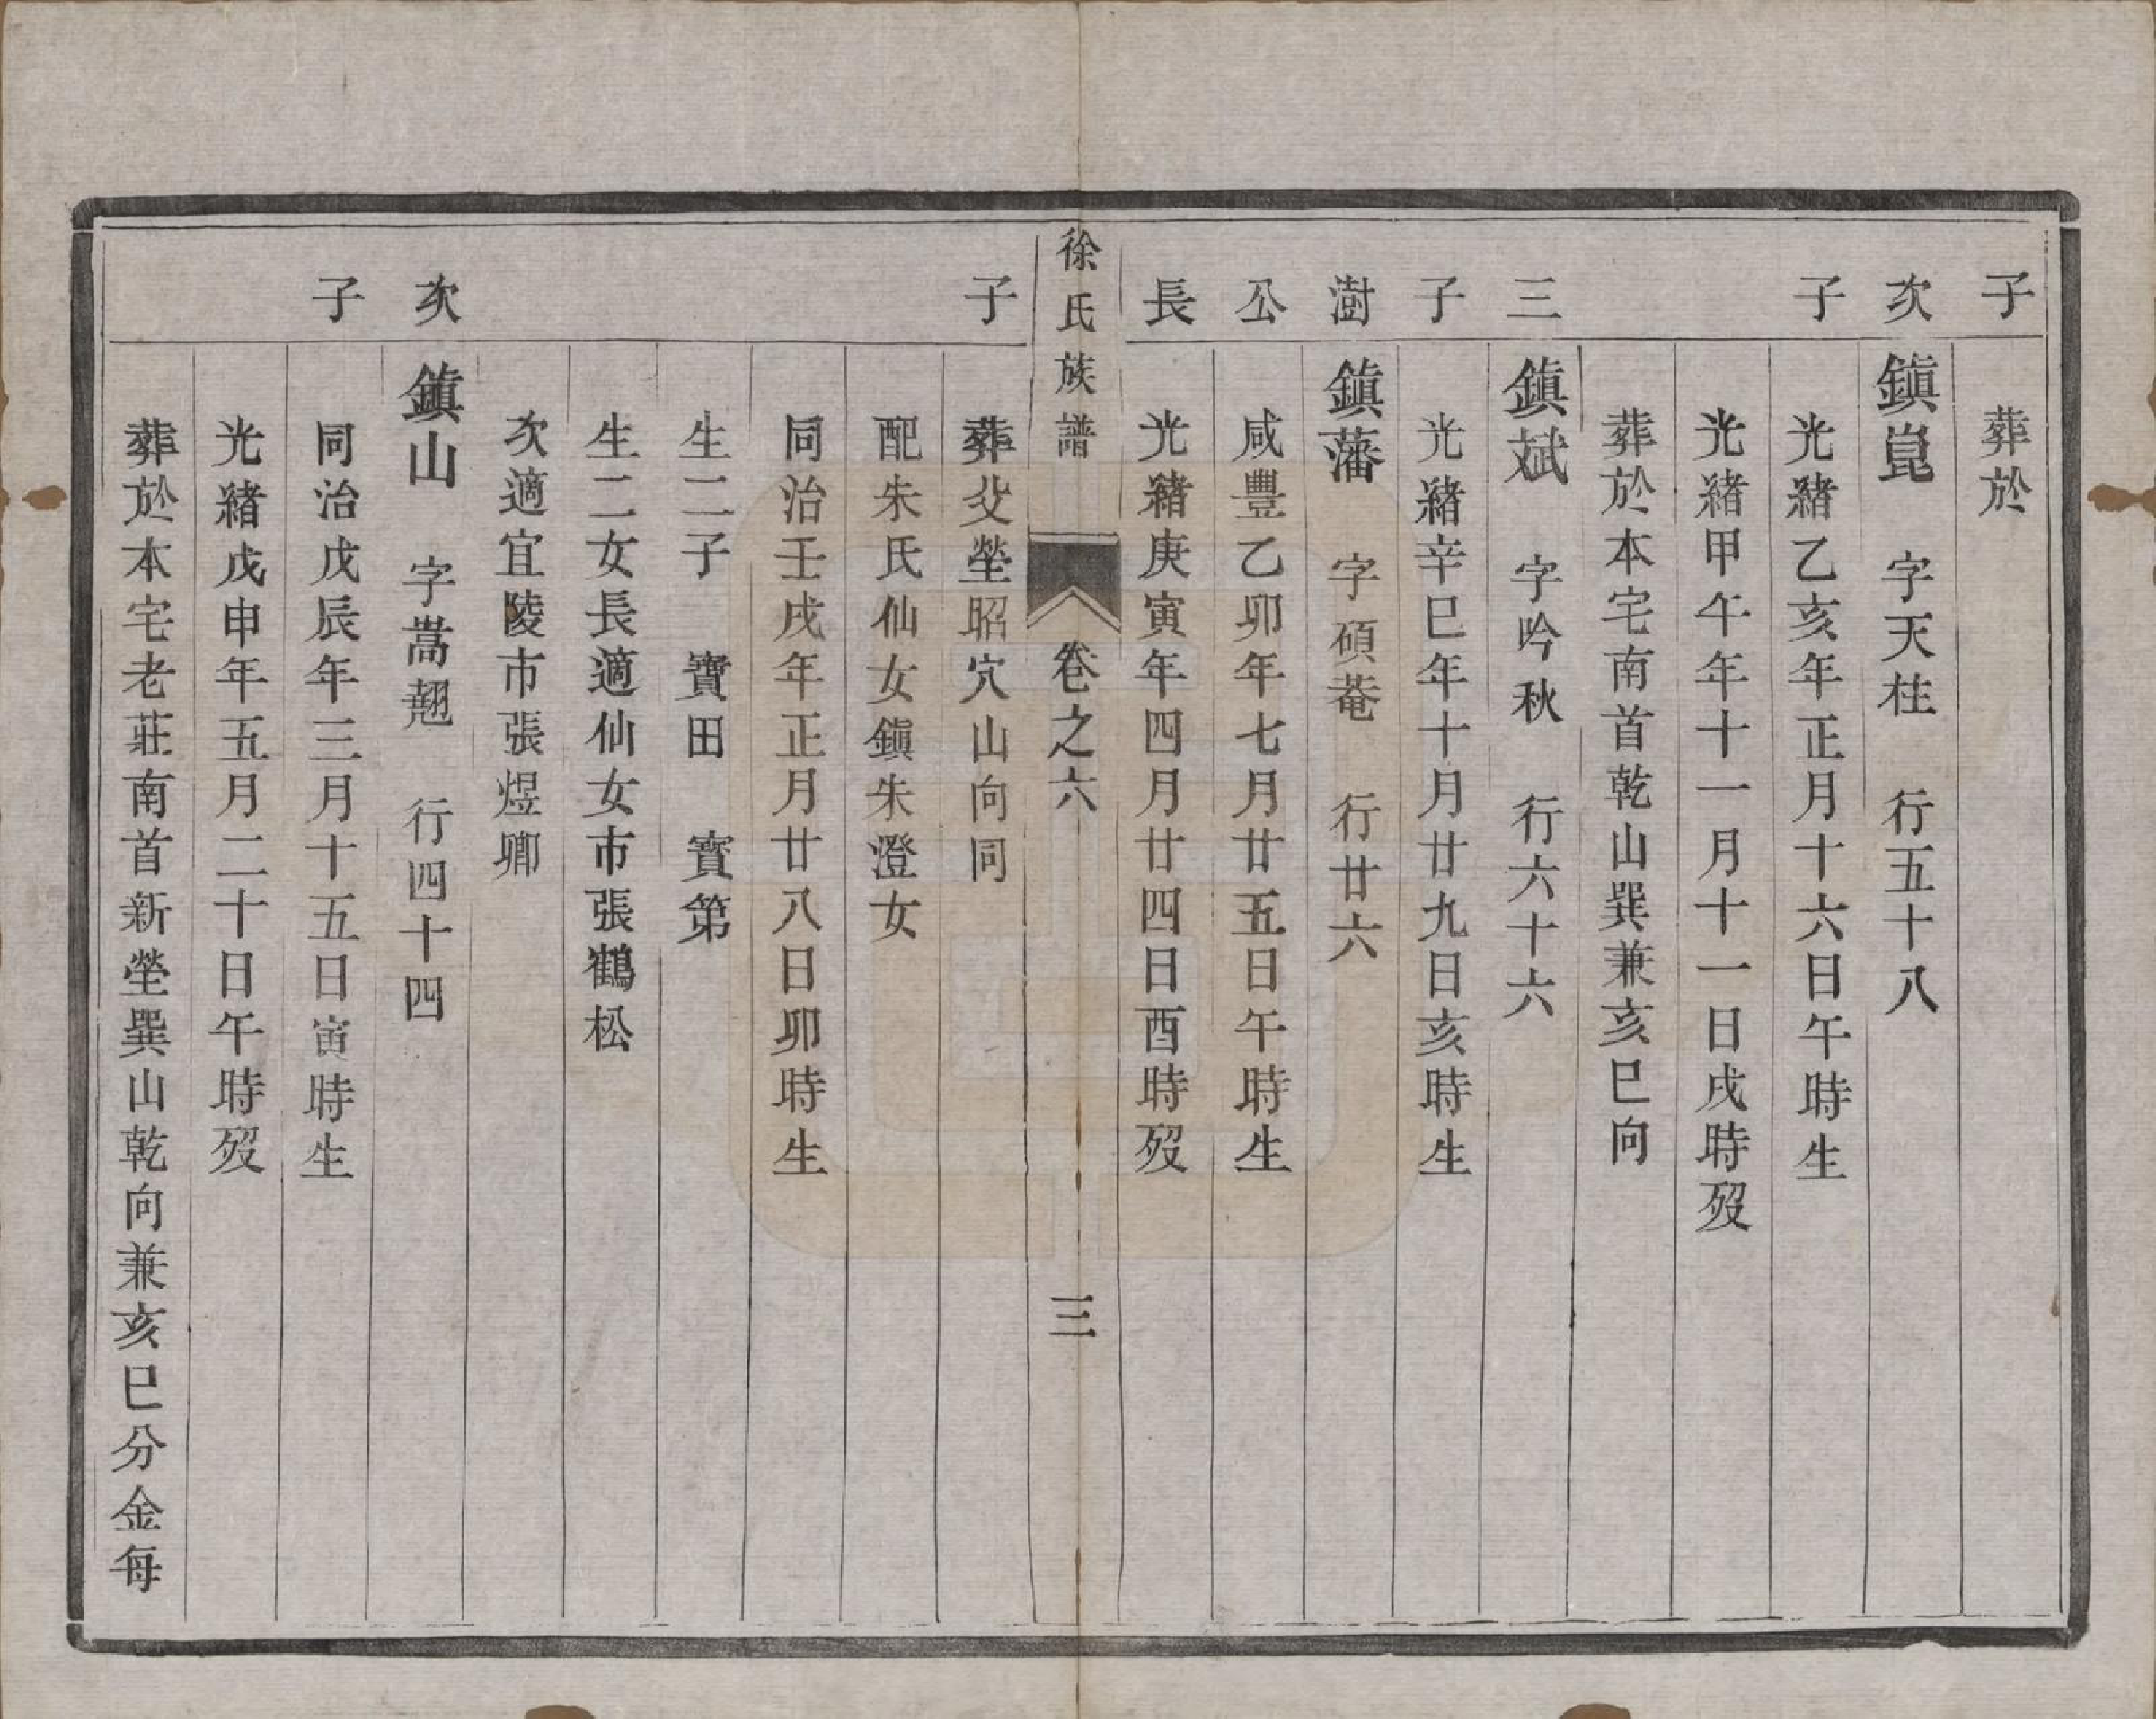 子　葬於
次　鎮崑　字天柱　行五十八
子　光緒乙亥年正月十六日午時生
光緒甲午年十一月十一日戌時歿
葬於本宅南首乾山巽兼亥巳向
三　鎮斌　字吟秋　行六十六
子　光緒辛巳年十月廿九日亥時生
澍　鎮藩　字碩菴　行廿六
公　咸豐乙卯年七月廿五日午時生
長　光緒庚寅年四月廿四日酉時歿
徐氏族譜　卷之六　三
子　葬父塋昭穴山向同
配朱氏仙女鎮朱澄女
同治壬戌年正月廿八日卯時生
生二子　寶田　寶第
生二女長適仙女市張鶴松
次適宜陵市張煜卿
次　鎮山　字嵩翹　行四十四
子　同治戊辰年三月十五日寅時生
光緒戊申年五月二十日午時歿
葬於本宅老莊南首新塋巽山乾向兼亥巳分金每